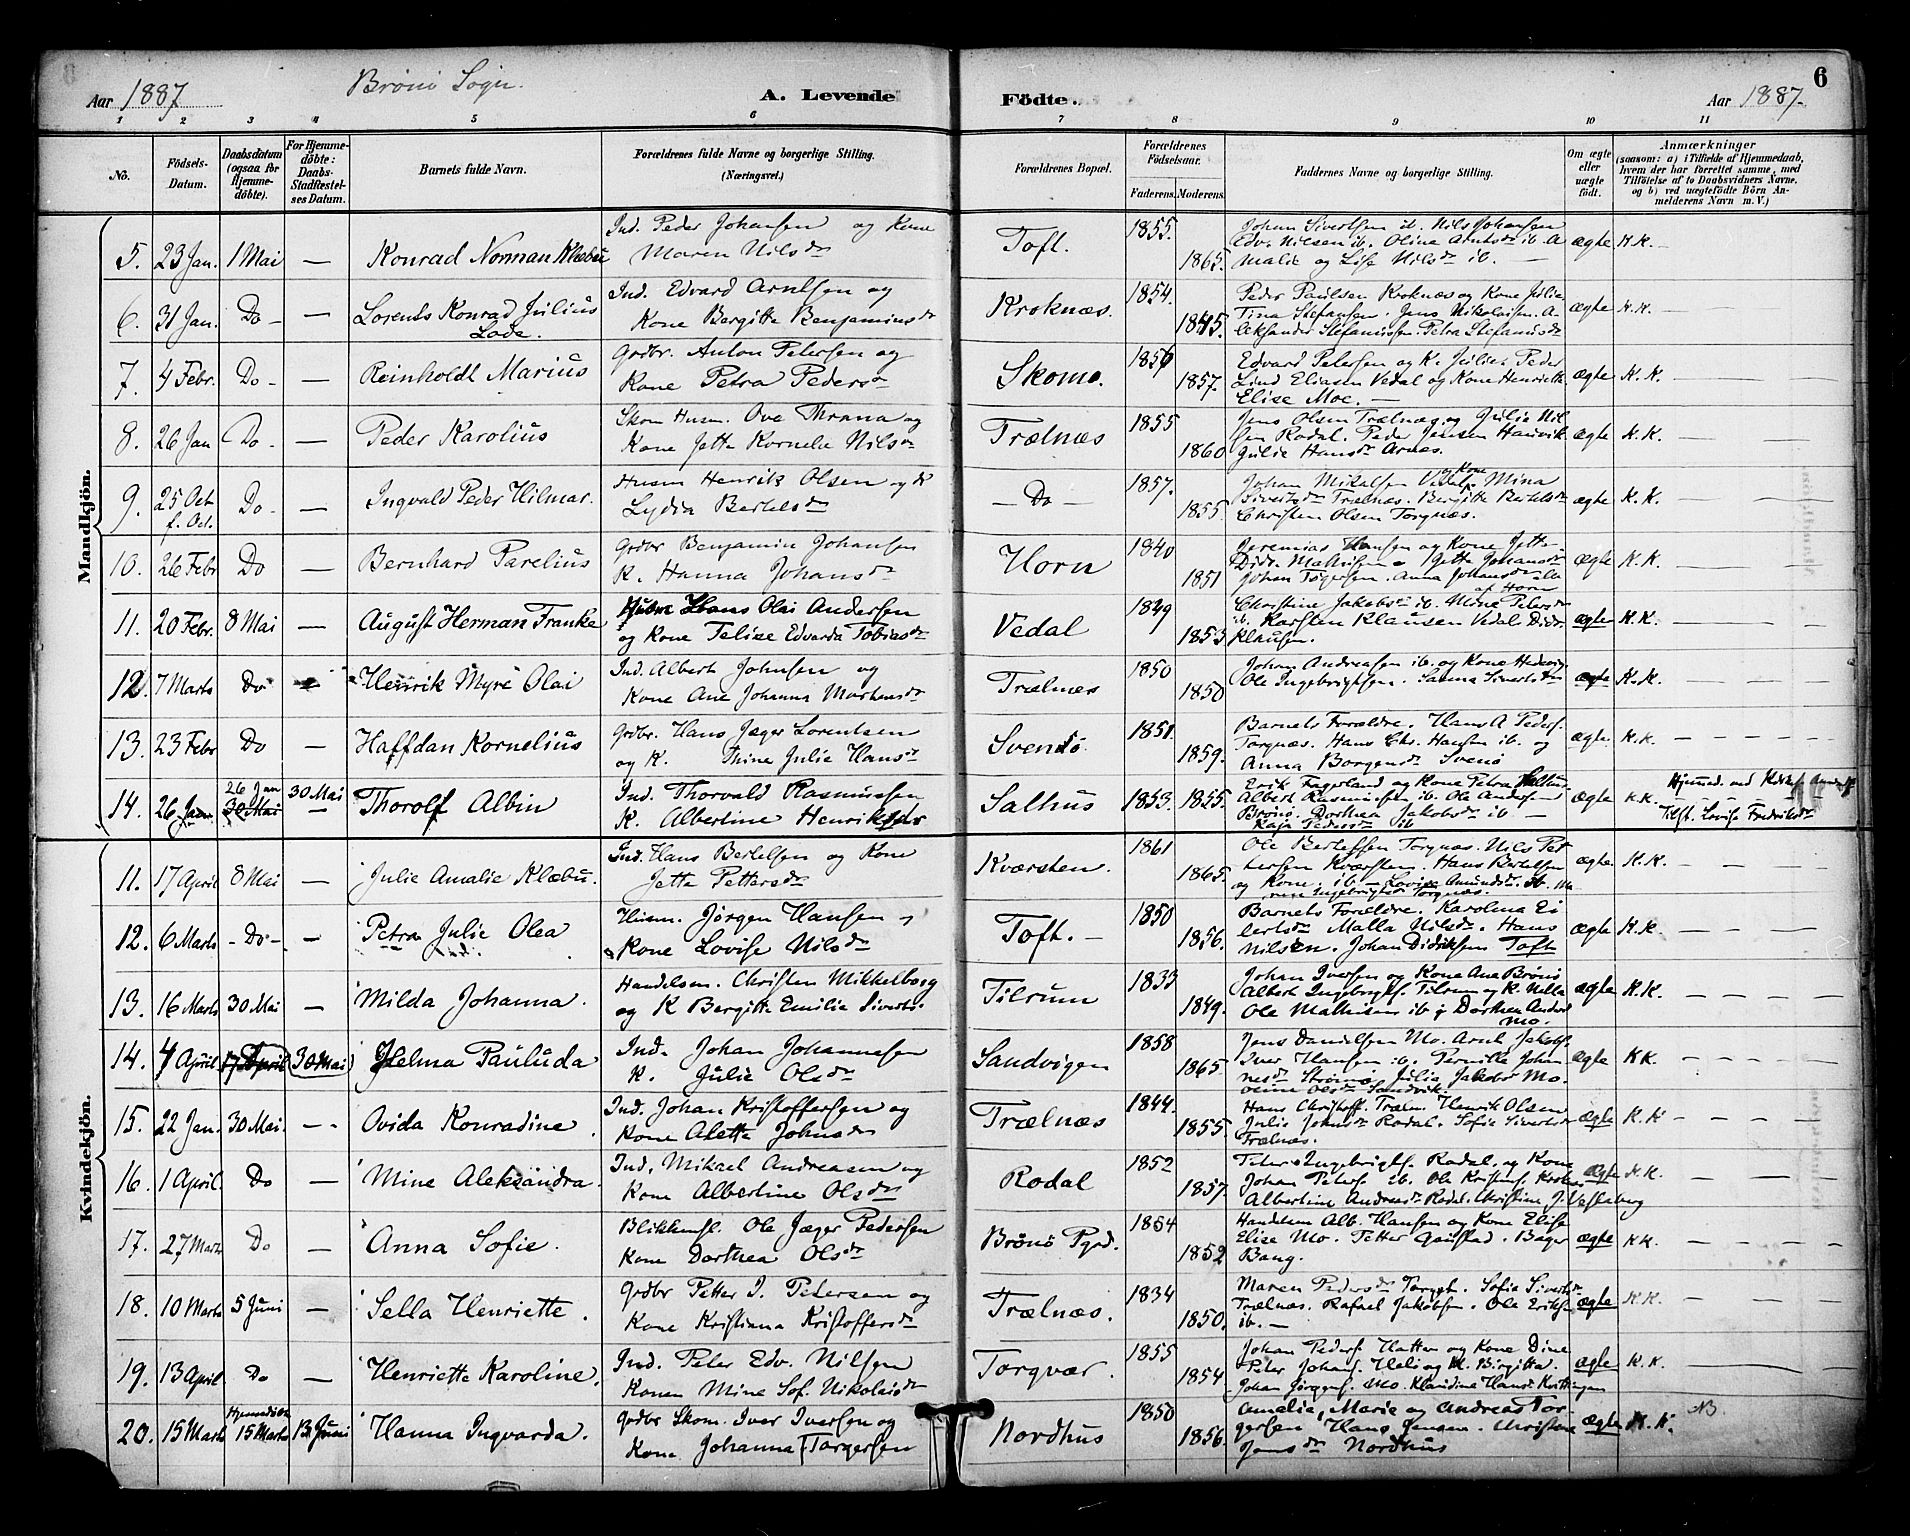 6
Aar 1887 Brønø Sogn. A. Levende Födte. Aar 1887.
1 2 3 4 5 6 7 8 9 10 11
No. Födsels-Datum. Daabsdatum (ogsaa for Hjemmedöbte). For Hjemmedöbte: Daabs-Stadfæstelses Datum. Barnets fulde Navn. Forældrenes fulde Navne og borgerlige Stilling. (Næringsvei.) Forældrenes Bopæl. Forældrenes Födselsaar. Faderens. Moderens. Faddernes Navne og borgerlige Stilling. Om ægte eller uægte födt. Anmærkninger (saasom: a) i Tilfælde af Hjemmedaab, hvem der har forrettet samme, med Tilföielse af to Daabsvidners Navne, og b) ved uægtefödte Börn Anmelderens Navn m. V.)
Mandkjön.
5. 23 Jan. 1 Mai — Konrad Norman Klæbu Ind. Peder Johansen og Kone Maren Nilsdr Toft. 1855. 1865. Johan Sivertsen ib. Nils Johansen Edv. Nilsen ib. Olina Arntsdr ib. Amalie og Lise Nilsdr ib. — ægte K.K. —
6. 31 Jan. Do — Lorents Konrad Julius Lode. Ind. Edvard Arntsen og Kone Bergitte Benjaminsdr Kroknæs. 1854. 1845. Peder Paulsen Kroknæs og Kone Julia Tina Stefansen. Jens Nikolaisen. Aleksander Stefanussen. Petra Stefansdr ægte K.K. —
7. 4 Febr. Do — Reinholdt Marius Grdbr. Anton Petersen og Kone Petra Pedersdr Skomo. 1856 1857. Edvard Petersen og K. Julie. Peder Lind Eliasen Vedal og Kone Henriette Elise Moe. — ægte K.K. —
8. 26 Jan Do — Peder Karolius Skom Husm. Ove Thrana og Kone Jette Kornelia Nilsdr Trælnæs 1855 1860 Jens Olsen Trælnæs og Julie Nilsen Rodal. Peder Jensen Hamvik Julie Hansdr Arnæs. ægte K.K. —
9. 25 Oct f. Oct. Do — Ingvald Peder Hilmar. Husm Henrik Olsen og K Lydia Bertelsdr — Do — 1857. 1855. Johan Mikalsen Vedal og Kone Mina Sivertsdr Trælnæs. Bergitte Bertelsdr Christen Olsen Torgnæs. ægte K.K. —
10. 26 Febr Do — Bernhard Parelius Grdbr Benjamin Johansen K. Hanna Johansdr Horn 1840 1851 Jeremias Hansen og Kone Jette Didr. Mathisen Jette Johansdr Johan Torgersen. Anna Johansdr alle af Horn ægte K.K. —
11. 20 Febr. 8 Mai — August Herman Franke Husm Hans Olai Andersen og Kone Felise Edvarda Tobiasdr Vedal 1849 1853 Christine Jakobsdr ib. Mine Petersdr ib. Karsten Klausen Vedal Didr. Klausen. ægte K.K. —
12. 7 Marts Do — Henrik Myre Olai Ind. Albert Johnsen og Kone Ane Johanna Mortensdr Trælnæs 1850 1850 Johan Andreassen ib. og Kone Hedevig Ole Ingebrigtsen. Sanna Sivertsdr ægte K.K. —
13. 23 Febr Do — Haffdan Kornelius Grdbr. Hans Jæger Lorentsen og K. Thine Julie Hansdr Svensø. 1851. 1859. Barnets Forældre. Hans A Peders. Torgnæs. Hans Chr. Hansen ib. og Anna Borgensdr Svenø ægte K.K. —
14. 26 Jan 26 Jan 30 Mai 30 Mai Thorolf Albin Ind. Thorvald Rasmussen K. Albertine Henriksdr Salhus 1853. 1855. Erik Fagerland og Kone Petra Salhus Albert Rasmussen ib. Ole Anders Brønø. Dorthea Jakobsdr ib. — Kaja Pedersdr ib ægte K.K. Hjemmed. ved Tilst. Lovise Fredriksdr
Kvindekjön.
11. 17 April 8 Mai — Julie Amalie Klæbu. Ind. Hans Bertelsen og Kone Jette Pettersdr Kværsten. 1861 1865. Ole Bertelsen Torgnæs. Nils Pettersen Kværsten. Hans Bertelsen og Kone ib. — Lovise Amundsdr. ib. Maren Ingebrigtsdr Torgnæs. ægte K.K. —
12. 6 Marts — Do — — Petra Julie Olea Husm. Jørgen Hansen, Kone Lovise Nilsdr Toft. — 1850 1856. Barnets Forældre. Karolina Eilertsdr Malla Nilsdr. Hans Nilsen. Johan Didriksen Toft ægte K.K. —
13. 16 Marts 30 Mai — Milda Johanna. Handelsm. Christen Mikkelborg og K Bergitte Emilia Siverts. Tilrum 1833 1849. Johan Iversen og Kone Ane Brønø Albert Ingebrigts. Tilrum og K. Nella Ole Mathisen ib. Dorthea Anders Mo. ægte K.K. —
14. 4 April 17 April 30 Mai Helma Pauluda Ind. Johan Johannesen K. Julie Olsdr Sandvigen 1858 1865. Jens Danielsen Mo. Arnt Jakobs. Iver Hansen ib. Pernille Johannesdr Strømø Julia Jakobs Mo. Oline Olsdr Sandvik. ægte KK —
15. 22 Jan. 30 Mai. — Ovida Konradine. Ind. Johan Kristoffersen og Kone Aletta Johnsdr Trælnæs 1844. 1855. Hans Christoff. Træln. Henrik Olsen Julie Johnsdr Rodal. Sofie Sivertsdr Trælnæs. ægte K.K —
16. 1 April Do — Mine Aleksandra. Ind. Mikael Andreasen og Kone Albertine Olsdr Rodal 1852 1857. Peter Ingebrigts. Rodal. og Kone Johan Peters ib. Ole Kristens. Albertine Andreasdr Rodal. Christine J. Vassberg ægte K.K. —
17. 27 Marts Do — Anna Sofie. Blikkensl. Ole Jæger Pedersen Kone Dorthea Olsdr Brønø Pgd. 1854 1852 Handelsm Alb. Hansen og Kone Elise Elise Mo. Petter Gaustad. Bager Bang. ægte KK. —
18. 10 Marts 5 Juni — Sella Henriette. Grdbr Petter J. Petersen og Kone Kristiana Kristoffersdr Trælnæs. 1834 1850. Maren Pedersdr Torgnæs. Sofia Sivertsdr Trælnæs. Rafael Jakobsen. Ole Eriksen ib. — ægte K.K. —
19. 13 April Do — Henriette Karoline. Ind. Peter Edv. Nilsen Konen Mine Sof. Nikolaisdr Torgvær. 1855 1854 Johan Peders. Hatten og Kone Dine Peter Johans. Heli og K. Birgitta. Johan Jørgens. Mo. Klaudine Hansd Kvittingen ægte K.K. —
20. 15 Marts Hjemmedøbt 15 Marts 13 Juni Hanna Ingvarda. Grdbr Skom. Iver Iversen og Kone Johanna Torgersen Nordhus 1850 1856. Amalia, Marie og Andreas Torgersen Hans Jensen. Christine Jensdr Nordhus ægte K.K. NB